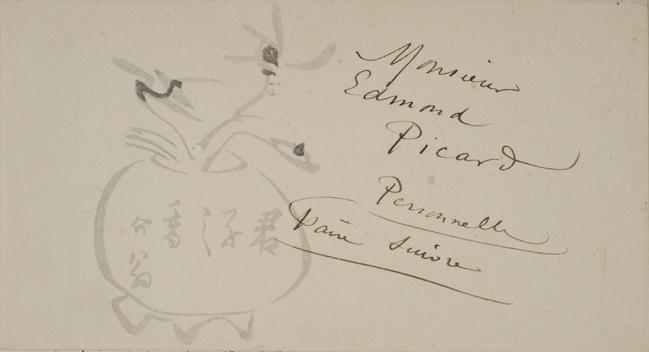 Monsieur
Edmond
Picard
Personnelle
faire suivre
君
香